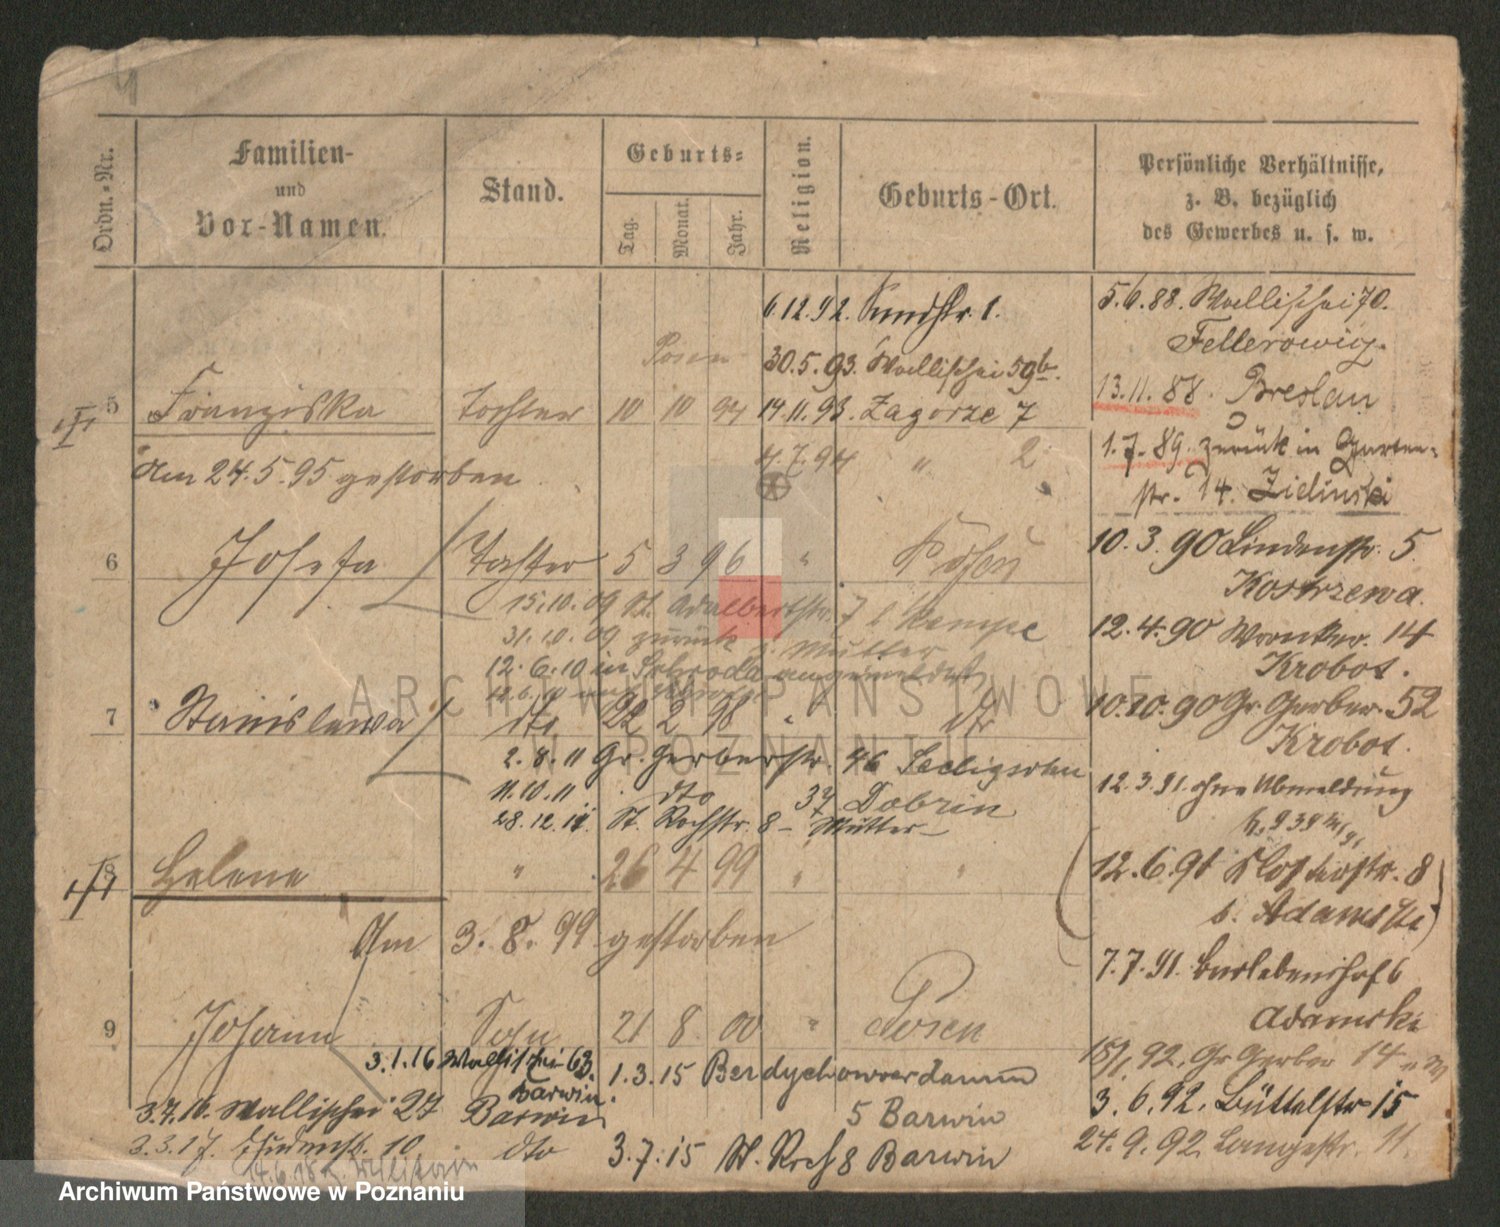 Ordn.-Nr.
Familien-
und
Vor-Namen.
Stand.
Geburts-
Tag.
Monat.
Jahr.
Religion.
Geburts-Ort.
Persönliche Verhältnisse,
z. B. bezüglich
des Gewerbes u. s. w.
6.12.92. 1.
Posen
30.5.93. Wallischei 59b.
5 Franziska Tochter 10 10 94 14.11.93. Zagorze 7
Am 24.5.95 gestorben
4.7.94 " 2
6 Josefa Tochter 5 3 96 "
15.10.09 St. Adalbertstr. 7 b Kempe
31.10.09 zurück z. Mutter
12.6.10 in Schroda angemeldet
7 Stanislawa dto 22 2 98 " dto
2.8.11 Gr. Gerberstr. 46 Seeligsohn
11.10.11 dto 37 Dobrin
28.12.11. St. Rochstr. 8 – Mutter –
8 Helene " 26 4 99 " "
Am 3.8.99 gestorben
9 Johann Sohn 21 8 00 " Posen
3.1.16 Wallischei 63.
Barwin.
1.3.15 Berdychowoerdamm
5 Barwin
Wallischei 27 Barwin
3.3.17. 10 dto
3.7.15 St. Roch 8 Barwin
5.6.88. Wallischei 70.
Fellerowicz.
13.11.88. Breslau
1.7.89. zurück in Garten-
str. 14. Zielinski
10.3.90 Lindenstr. 5
Kostrzewa.
12.4.90 Wronker. 14
Krobot.
10.10.90 Gr. Gerber. 52
Krobot.
12.3.91. ohne Abmeldung
12.6.91 Klosterstr. 8
b. Adamski
7.7.91. 6
Adamski
92. Gr Gerber 14
3.6.92. Büttelstr 15
24.9.92. Langestr. 11.
ARCHIWUM PAŃSTWOWE
W POZNANIU
Archiwum Państwowe w Poznaniu